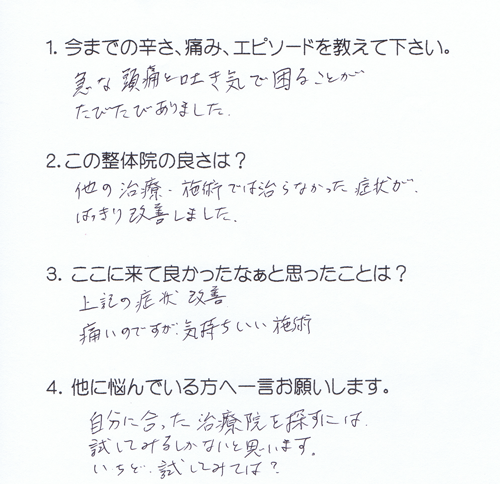 1. 今までの辛さ、痛み、エピソードを教えて下さい。
急な頭痛と吐き気で困ることが
たびたびありました.
2.この整体院の良さは？
他の治療・施術では治らなかった症状が、
はっきり改善しました.
3. ここに来て良かったなぁと思ったことは？
上記の症状改善
痛いのですが、気持ちいい施術
4. 他に悩んでいる方へ一言お願いします。
自分に合った治療院を探すには、
試してみるしかないと思います。
いちど、試してみては？